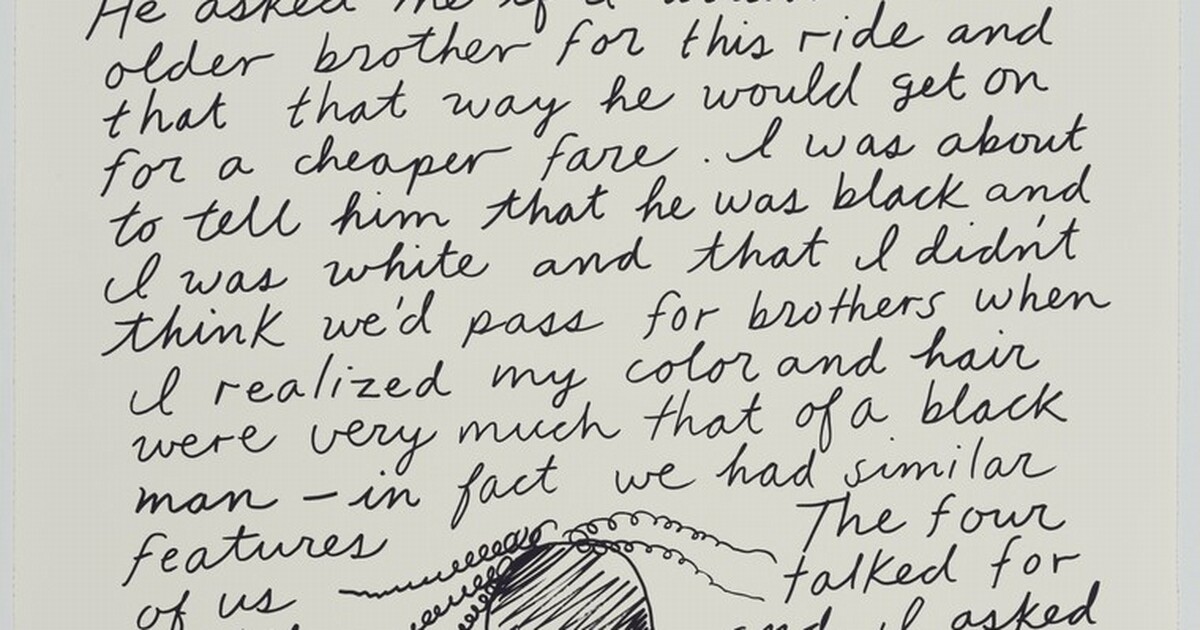 He asked me if I
older brother for this ride and
that that way he would get on
for a cheaper fare. I was about
to tell him that he was black and
I was white and that I didn't
think we'd pass for brothers when
I realized my color and hair
were very much that of a black
man – in fact we had similar
features The four
of us talked for
and I asked